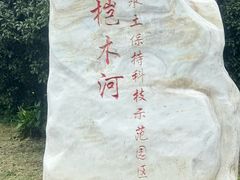 桤木河
水土保持科技示范园区